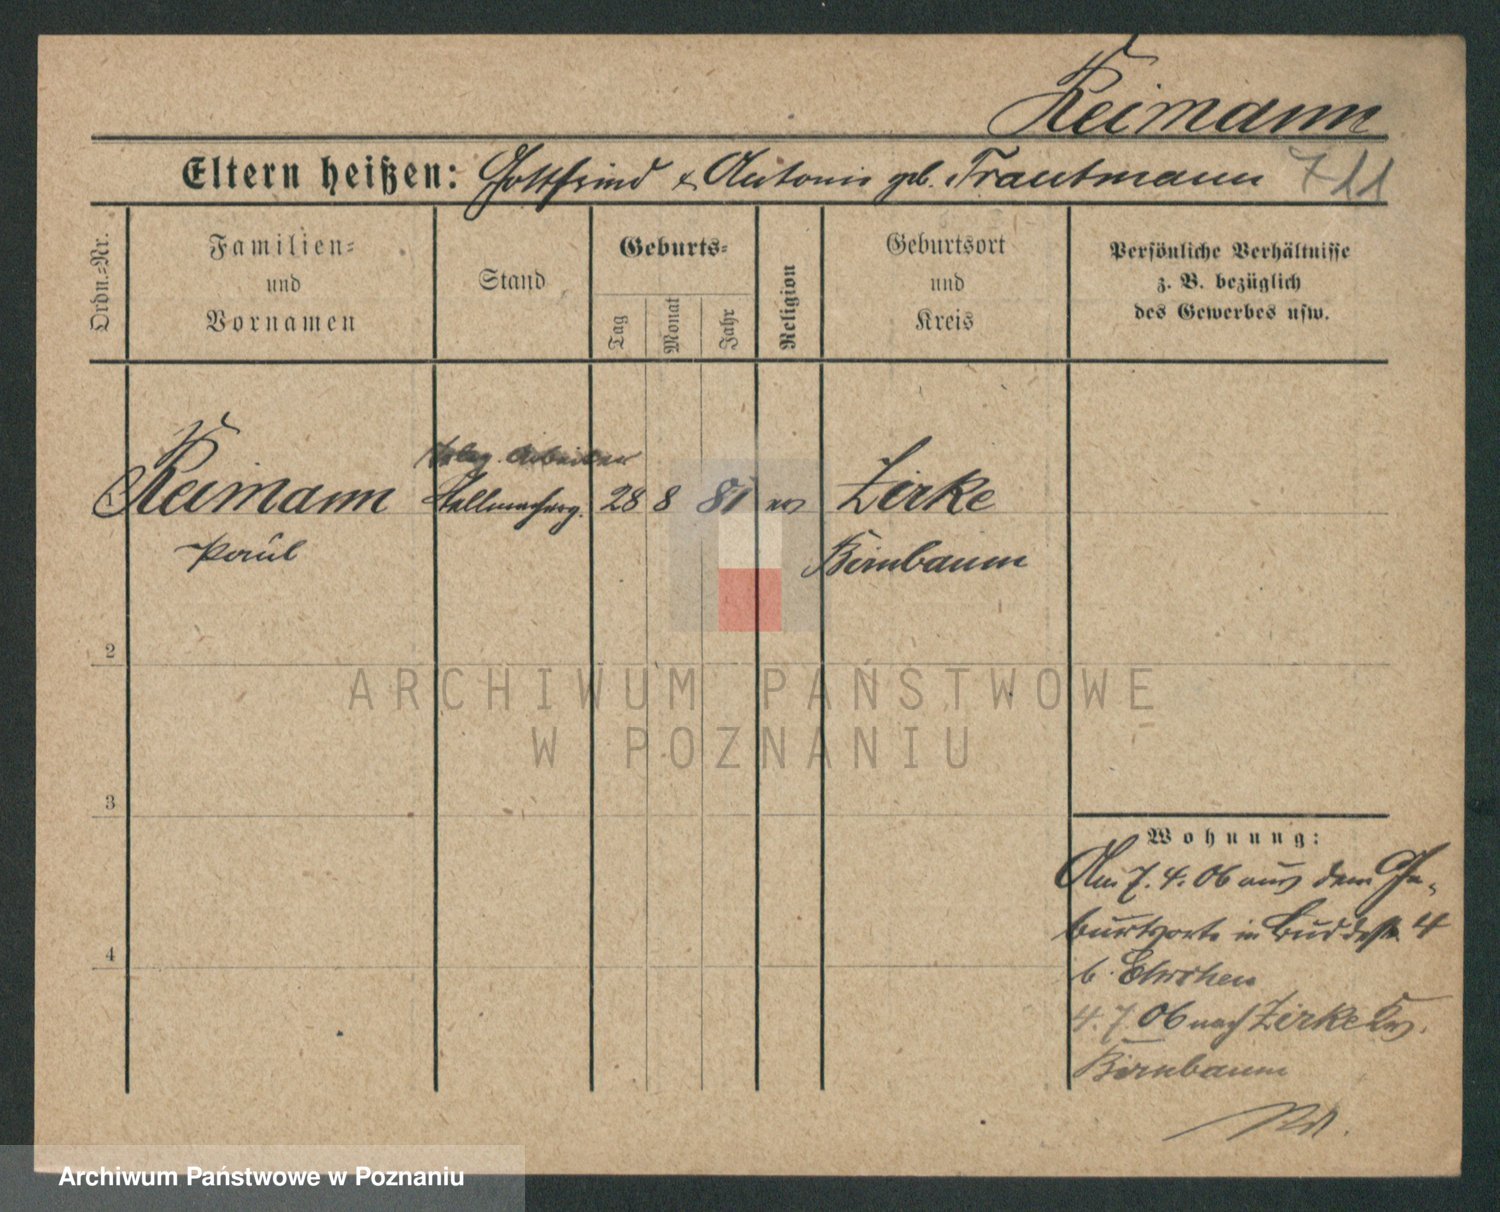 Reimann
Eltern heißen: Gottfried & Antonie geb. Trautmann 711
Ordn.-Nr.
Familien-
und
Vornamen
Stand
Geburts-
Tag
Monat
Jahr
Religion
Geburtsort
und
Kreis
Persönliche Verhältnisse
z. B. bezüglich
des Gewerbes usw.
Arbeiter
Reimann Stellmacherg. 28 8 81 ev Zirke
Paul Birnbaum
2
3
4
Wohnung:
Am 7. 4. 06 aus dem Ge-
burtsorte in Buddestr. 4
b.
4. 7. 06 nach Zirke Krs.
Birnbaum
ARCHIWUM PAŃSTWOWE
W POZNANIU
Archiwum Państwowe w Poznaniu